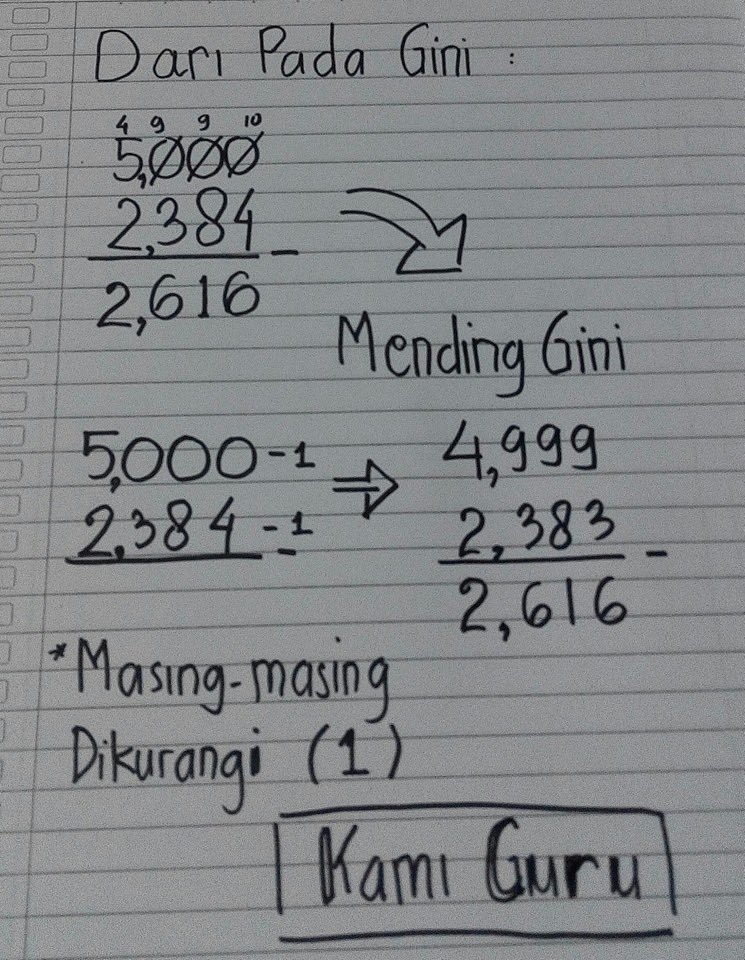 Dari Pada Gini :
4 9 9 10
5,000
2,384 -
2,616
Mending Gini
5,000 -1 ⇒ 4,999
2,384 -1 2,383 -
-
2,616
*Masing-masing
Dikurangi (1)
Kami Guru